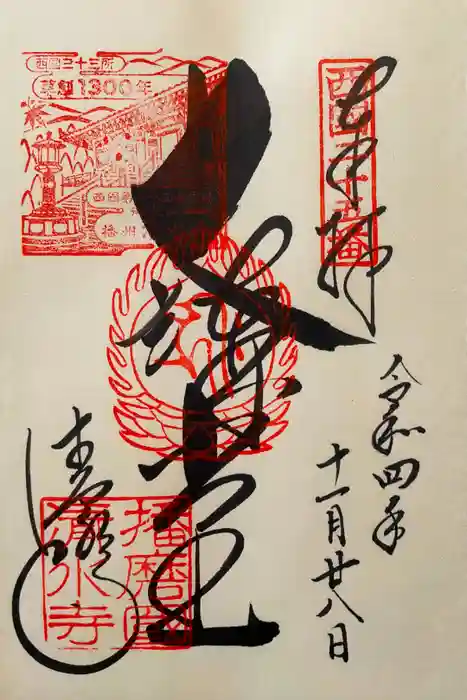 西國二十五番
奉拝
令和四年
十一月廿八日
大講堂
西国三十三所
草創1300年
播州
清水寺
播磨國
清水寺